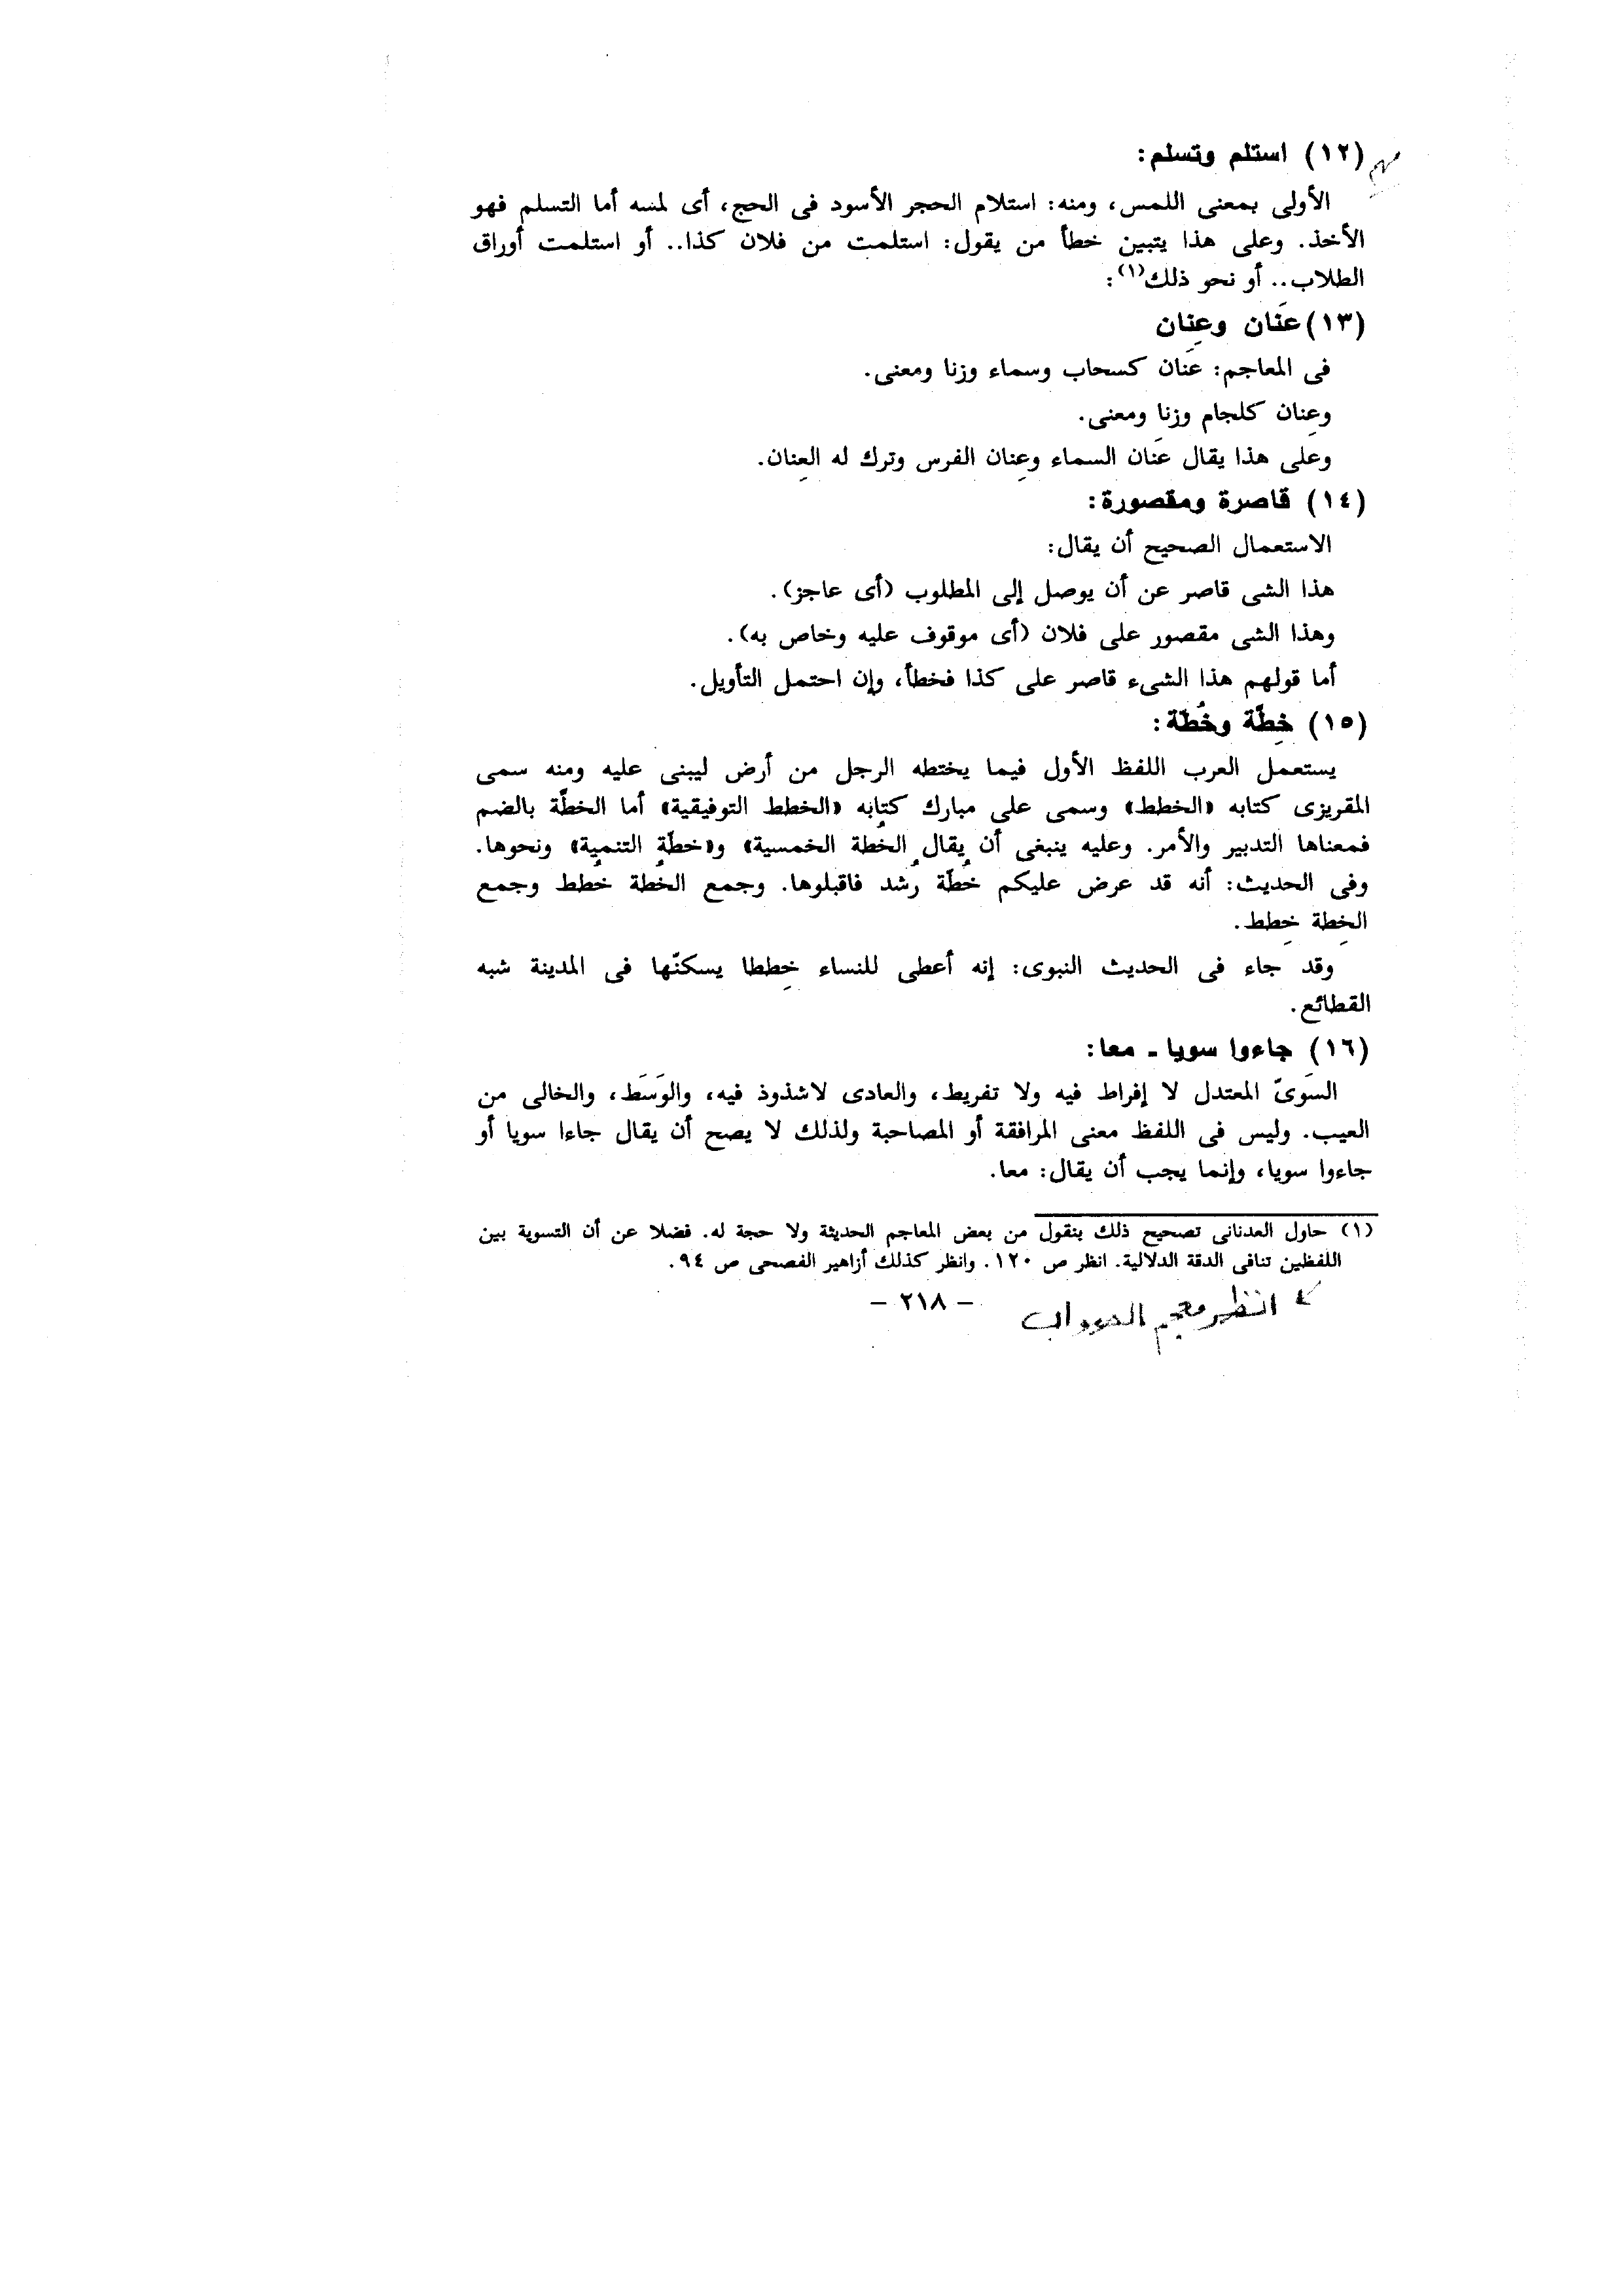 (١٢) استلم وتسلم:
الأولى بمعنى اللمس، ومنه: استلام الحجر الأسود فى الحج، أى لمسه أما التسلم فهو
الأخذ. وعلى هذا يتبين خطأ من يقول: استلمت من فلان كذا.. أو استلمت أوراق
الطلاب.. أو نحو ذلك(١):
(١٣) عَنان وعِنان
فى المعاجم: عَنان كسحاب وسماء وزنا ومعنى.
وعِنان كلجام وزنا ومعنى.
وعلى هذا يقال عَنان السماء وعِنان الفرس وترك له العِنان.
(١٤) قاصرة ومقصورة:
الاستعمال الصحيح أن يقال:
هذا الشى قاصر عن أن يوصل إلى المطلوب (أى عاجز).
وهذا الشى مقصور على فلان (أى موقوف عليه وخاص به).
أما قولهم هذا الشىء قاصر على كذا فخطأ، وإن احتمل التأويل.
(١٥) خِطَّة وخُطَّة:
يستعمل العرب اللفظ الأول فيما يختطه الرجل من أرض ليبنى عليه ومنه سمى
المقريزى كتابه «الخطط» وسمى على مبارك كتابه «الخطط التوفيقية» أما الخطَّة بالضم
فمعناها التدبير والأمر. وعليه ينبغى أن يقال الخُطة الخمسية» و«خطَّة التنمية» ونحوها.
وفى الحديث: أنه قد عرض عليكم خُطَّة رُشد فاقبلوها. وجمع الخُطة خُطط وجمع
الخِطة خِطط.
وقد جاء فى الحديث النبوى: إنه أعطى للنساء خِططا يسكنّها فى المدينة شبه
القطائع.
(١٦) جاءوا سويا ـ معا:
السَوىّ المعتدل لا إفراط فيه ولا تفريط، والعادى لاشذوذ فيه، والوَسَط، والخالى من
العيب. وليس فى اللفظ معنى المرافقة أو المصاحبة ولذلك لا يصح أن يقال جاءا سويا أو
جاءوا سويا، وإنما يجب أن يقال: معا.
(١) حاول العدنانى تصحيح ذلك بنقول من بعض المعاجم الحديثة ولا حجة له. فضلا عن أن التسوية بين
اللفظين تنافى الدقة الدلالية. انظر ص ١٢٠. وانظر كذلك أزاهير الفصحى ص ٩٤.
انظر معجم الصواب
– ٢١٨ –